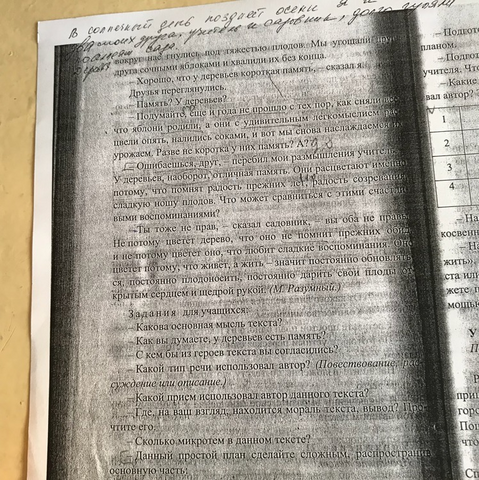 В солнечный день поздней осени я и
два моих друга, учитель и садовник, долго гуляли
сада.
вокруг нас гнулись под тяжестью плодов. Мы угощали друг
друга сочными яблоками и хвалили их без конца.
– Хорошо, что у деревьев короткая память, – сказал я.
Друзья переглянулись.
– Память? У деревьев?
– Подумайте, еще и года не прошло с тех пор, как сняли
что яблони родили, а они с удивительным легкомыслием
цвели опять, налились соками, и вот мы снова наслаждаемся
урожаем. Разве не коротка у них память? А?
– Ошибаешься, друг, – перебил мои размышления учитель.
У деревьев, наоборот, отличная память. Они расцветают именно
потому, что помнят радость прежних лет, радость созревания,
сладкую ношу плодов. Что может сравниться с этими счастли-
выми воспоминаниями?
– Ты тоже не прав, – сказал садовник, – вы оба не правы.
Не потому цветет дерево, что оно не помнит прежних обид,
и не потому цветет оно, что любит сладкие воспоминания. Оно
цветет потому, что живет, а жить – значит постоянно обновлять-
ся, постоянно плодоносить, постоянно дарить свои плоды с
крытым сердцем и щедрой рукой. (М. Разумный.)
Задания для учащихся:
– Какова основная мысль текста?
– Как вы думаете, у деревьев есть память?
– С кем бы из героев текста вы согласились?
– Какой тип речи использовал автор? (Повествование, рас-
суждение или описание.)
– Какой прием использовал автор данного текста?
– Где, на ваш взгляд, находится мораль текста, вывод? Про-
чтите его.
– Сколько микротем в данном тексте?
– Данный простой план сделайте сложным, распространив
основную часть.
– Подгото
планом.
– Подго
учителя. Что
– Какие
вал автор?
1
2
3
4
– На
косвенн
– На
жить»,
ста или
жете п
мощь
У
П
Р
при
горо
Пош
что
Сп